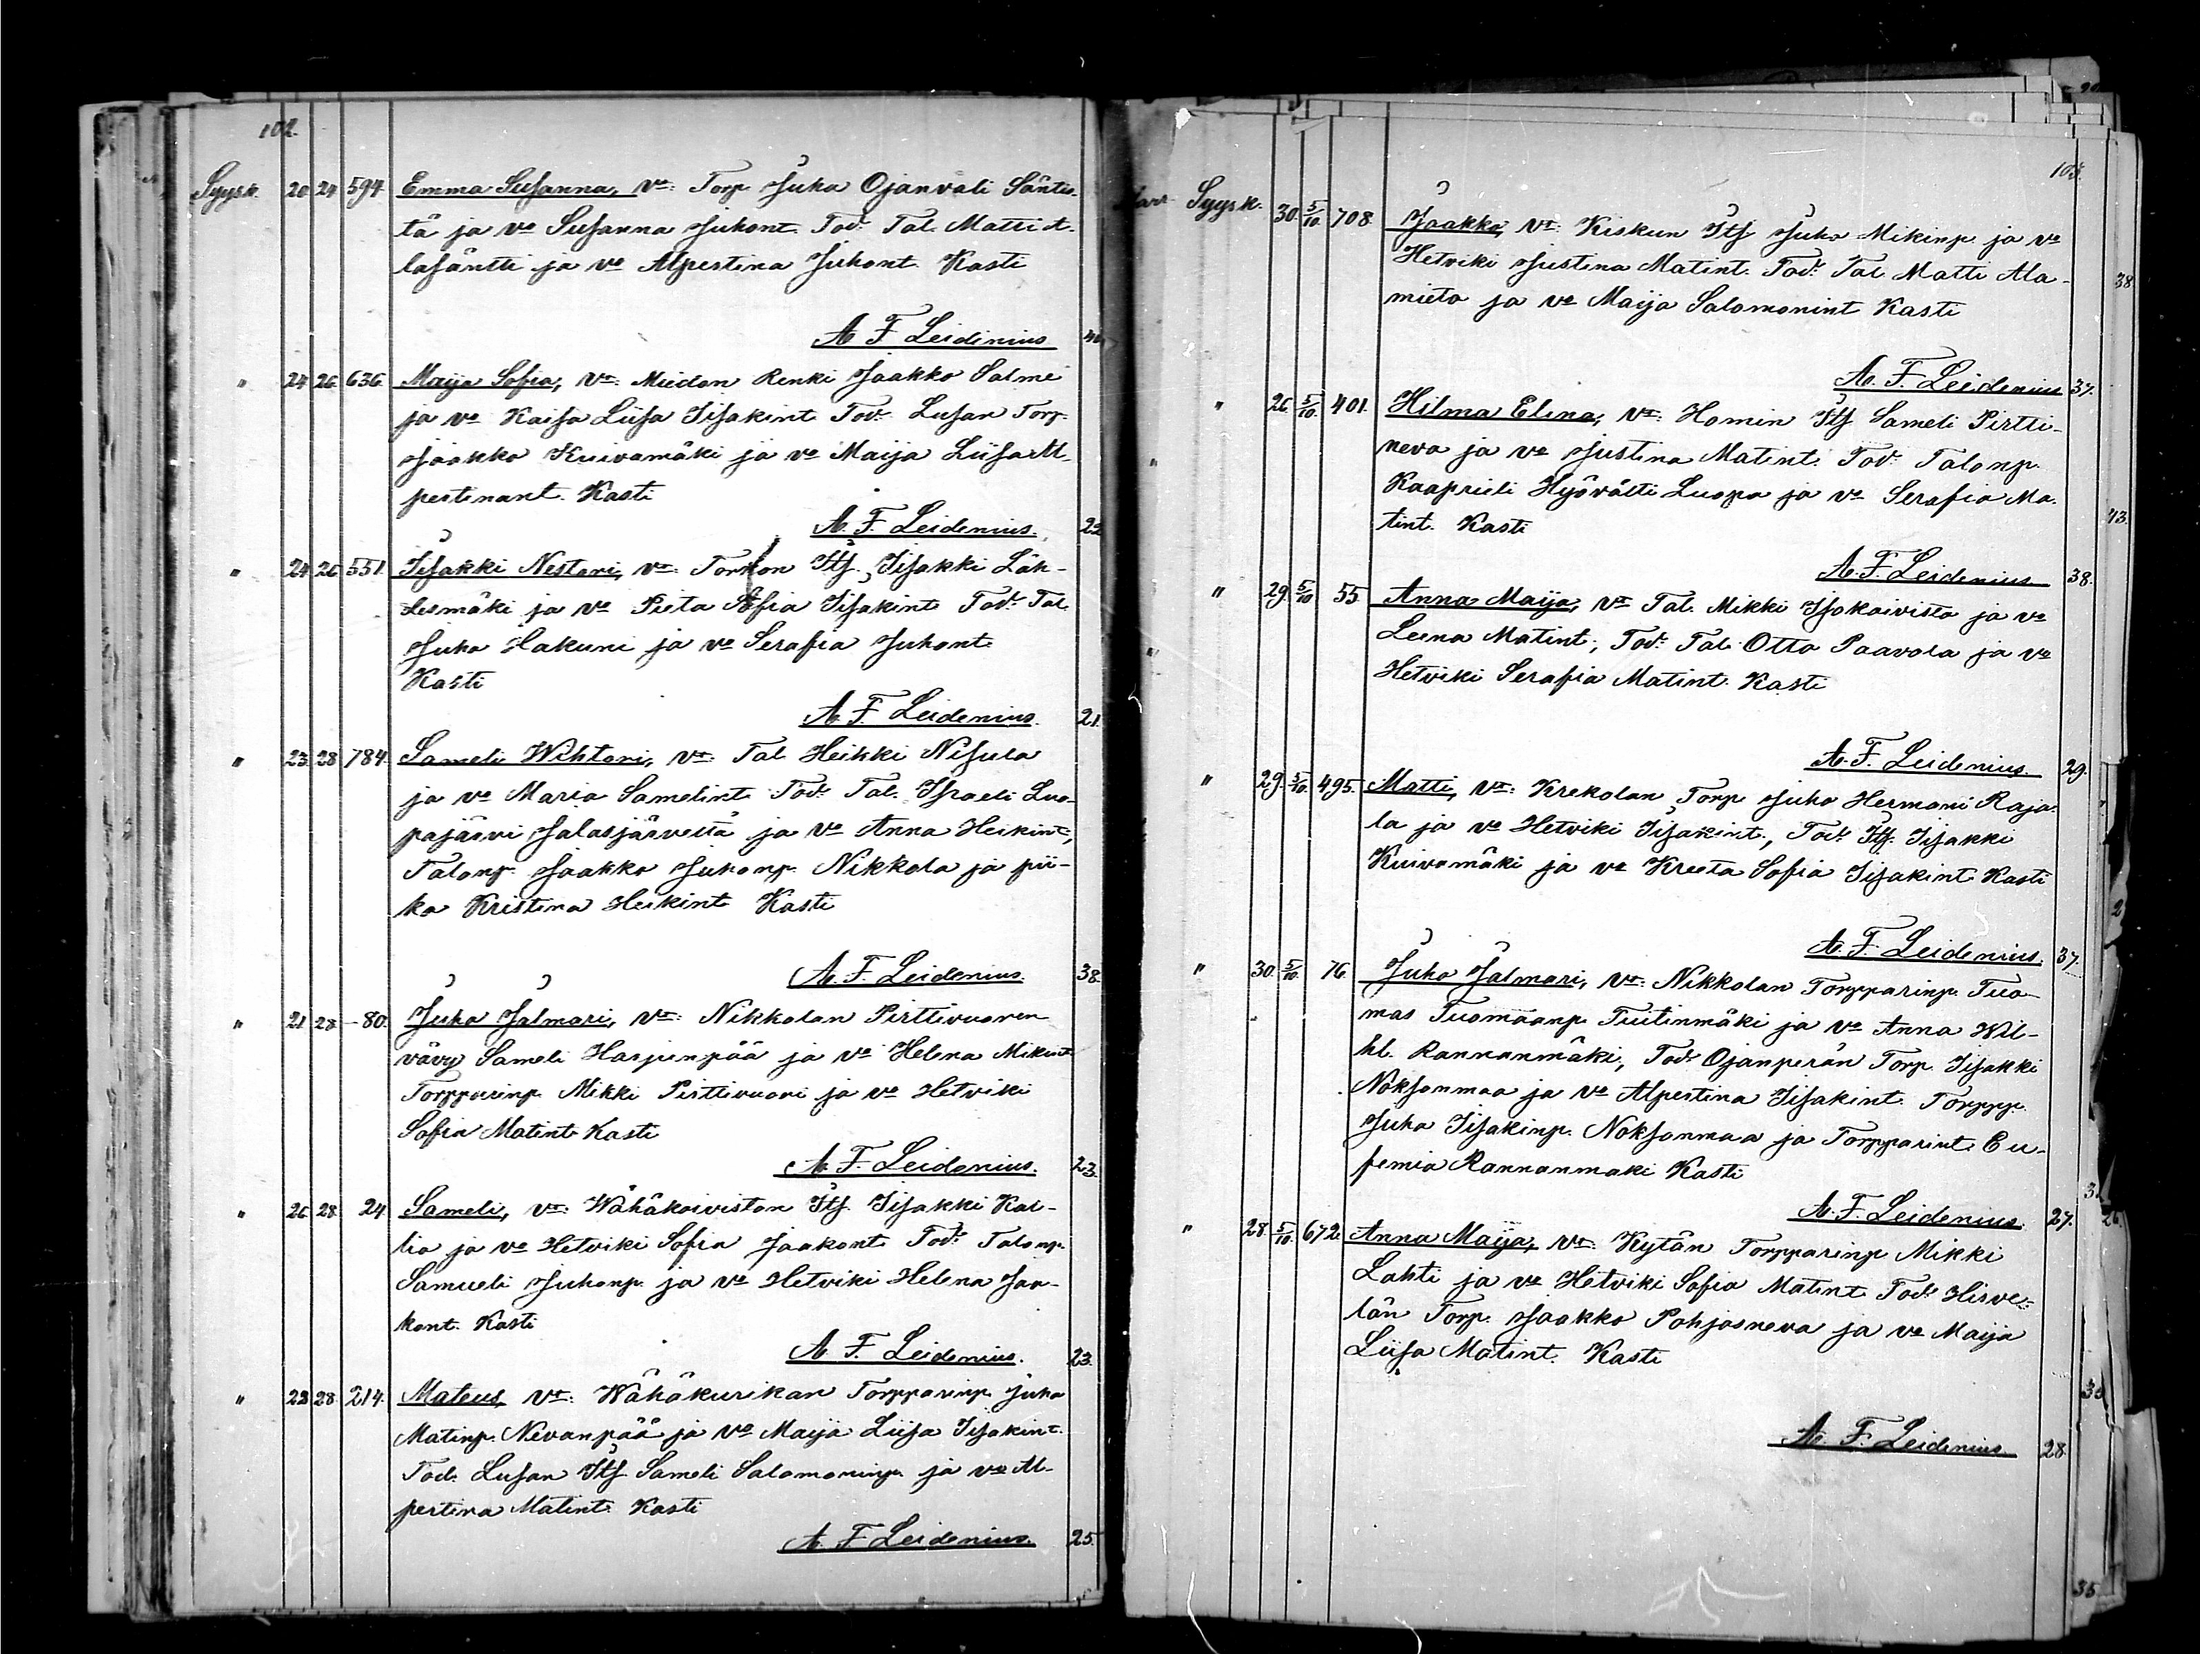 102.
Syysk. 20 24 594 Emma Susanna, vn: Torp. Juha Ojanvali Säntis-
tä ja vo Susanna Juhont. Tod: Tal. Matti A-
lasäntti ja vo Alpertina Juhont. Kasti
A F Leidenius
" 24 26 636 Maija Sofia, vn: Miedon Renki Jaakko Salmi
ja vo Kaisa Liisa Iisakint Tod: Lusan Torp.
Jaakko Kuivamäki ja vo Maija Liisa Al-
pertinant. Kasti
A. F. Leidenius. 22
" 24 26 551. Iisakki Nestori, vn: Torkon Its. Iisakki Läh-
desmäki ja vo Pieta Sofia Iisakint Tod: Tal.
Juha Hakuni ja vo Serafia Juhont.
Kasti
A. F. Leidenius. 21.
" 23 28 784. Sameli Wihtori, vn: Tal Heikki Nisula
ja vo Maria Samelint Tod: Tal. Israeli Luo-
pajärvi Jalasjärveltä ja vo Anna Heikint,
Talonp. Jaakko Juhonp. Nikkola ja pii-
ka Kristina Heikint Kasti
A. F. Leidenius. 38.
" 21 28 80. Juho Jalmari, vn: Nikkolan Pirttivuoren
vävy Sameli Harjunpää ja vo Helena Mikint
Torpparinp. Mikki Pirttivuori ja vo Hetviki
Sofia Matint Kasti
A. F. Leidenius. 23.
" 26 28 24 Sameli, vn: Wähäkoiviston Its. Iisakki Kal-
lio ja vo Hetviki Sofia Jaakont Tod: Talonp.
Samueli Juhonp. ja vo Hetviki Helena Jaa-
kont. Kasti
A. F. Leidenius. 23.
" 23 28 214. Mateus, vn: Wähäkurikan Torpparinp. Juha
Matinp. Nevanpää ja vo Maija Liisa Iisakint.
Tod. Lusan Its Sameli Salomoninp. ja vo Al-
pertina Matint. Kasti
A F Leidenius. 25.
103.
Syysk. 30. 5/10. 708 Jaakko, vn: Kiskun Its Juho Mikinp. ja vo
Hetviki Justina Matint. Tod: Tal. Matti Ala-
mieto ja vo Maija Salomonint Kasti
A. F. Leidenius 37.
" 26. 5/10. 401. Hilma Elina, vn: Homin Its Sameli Pirtti-
neva ja vo Justina Matint. Tod: Talonp.
Kaaprieli Hyövälti Luopa ja vo Serafia Ma-
tint. Kasti
A. F. Leidenius 38.
" 29. 5/10 55. Anna Maija, vn Tal. Mikki Isokoivisto ja vo
Leena Matint, Tod: Tal. Otto Paavola ja vo
Hetviki Serafia Matint. Kasti
A. F. Leidenius. 29.
" 29. 5/10. 495. Matti, vn: Krekolan Torp Juho Hermani Raja-
la ja vo Hetviki Iisakint, Tod: Its. Iisakki
Kuivamäki ja vo Kreeta Sofia Iisakint Kasti
A. F. Leidenius. 37.
" 30. 5/10. 76. Juho Jalmari, vn: Nikkolan Torpparinp. Tuo-
mas Tuomaanp. Tuitinmäki ja vo Anna Wil-
hl. Rannanmäki, Tod: Ojanperän Torp. Iisakki
Noksonmaa ja vo Alpertina Iisakint. Torppp.
Juha Iisakinp. Noksonmaa ja Torpparint Eu-
femia Rannanmaki Kasti
A. F. Leidenius. 27.
" 28. 5/10. 672. Anna Maija, vn: Kytän Torpparinp Mikki
Lahti ja vo Hetviki Sofia Matint Tod: Hirve-
län Torp. Jaakko Pohjasneva ja vo Maija
Liisa Matint. Kasti
A. F. Leidenius 28.